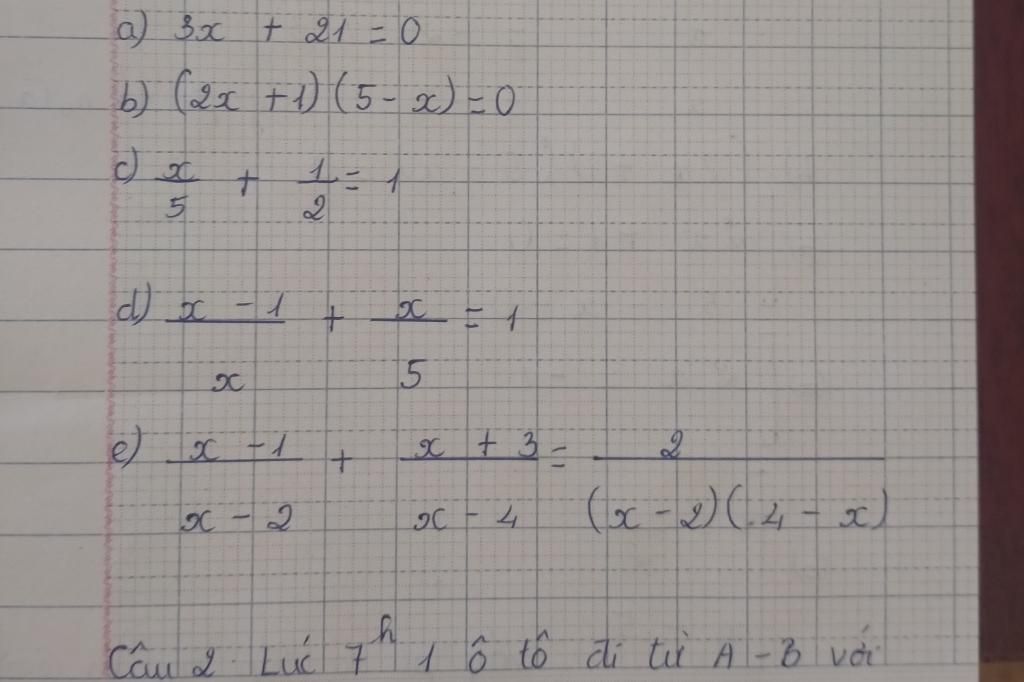 a) 3x + 21 = 0
b) (2x + 1)(5 - x) = 0
c) x/5 + 1/2 = 1
d) (x - 1)/x + x/5 = 1
e) (x - 1)/(x - 2) + (x + 3)/(x - 4) = 2/((x - 2)(4 - x))
Câu 2. Lúc 7h 1 ô tô đi từ A - B với